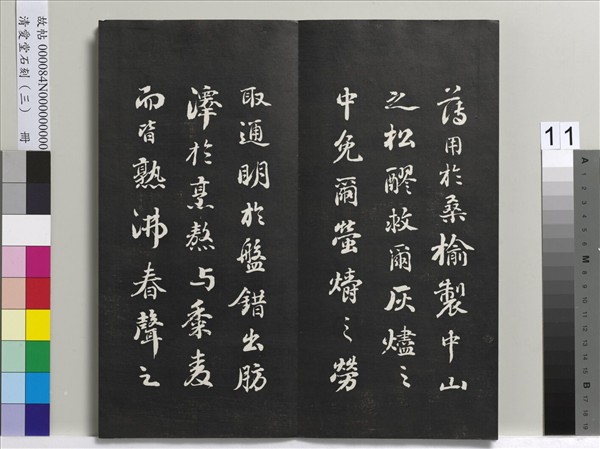 薄用於桑榆製中山
之松醪救爾灰燼之
中免爾螢爝之勞
取通明於盤錯出肪
澤於烹熬与黍麦
而皆熟沸春聲之
故帖 000084N000000000
清愛堂石刻（三） 冊
11